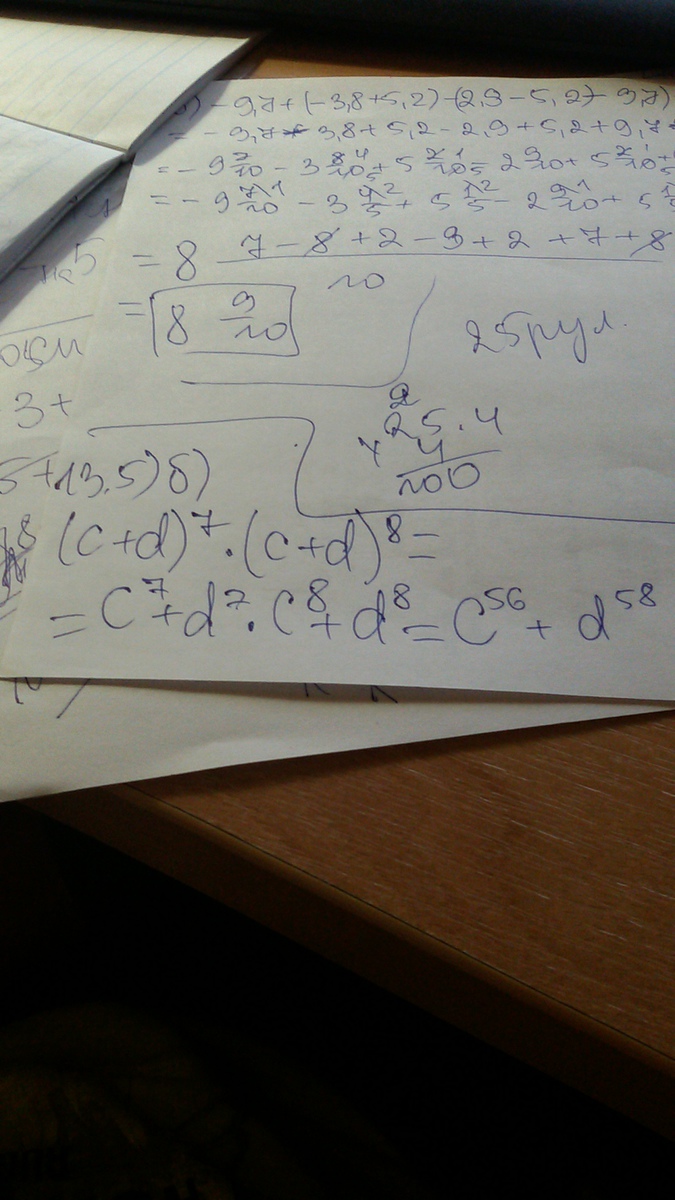 ) - 9,7 + (-3,8 + 5,2) - (2,9 - 5,2) - 9,7)
= - 9,7 - 3,8 + 5,2 - 2,9 + 5,2 + 9,7
= - 9 7/10 - 3 8/10 + 5 2/10 - 2 9/10 + 5 2/10
= - 9 7/10 - 3 4/5 + 5 1/5 - 2 9/10 + 5
= 8 (7 - 8 + 2 - 9 + 2 + 7 + 8)/10
= 8 9/10
25 рул.
2
25.4
× 4
100
3+
5+13,5) б)
(c+d)⁷·(c+d)⁸=
= c⁷+d⁷·c⁸+d⁸=c⁵⁶+d⁵⁸